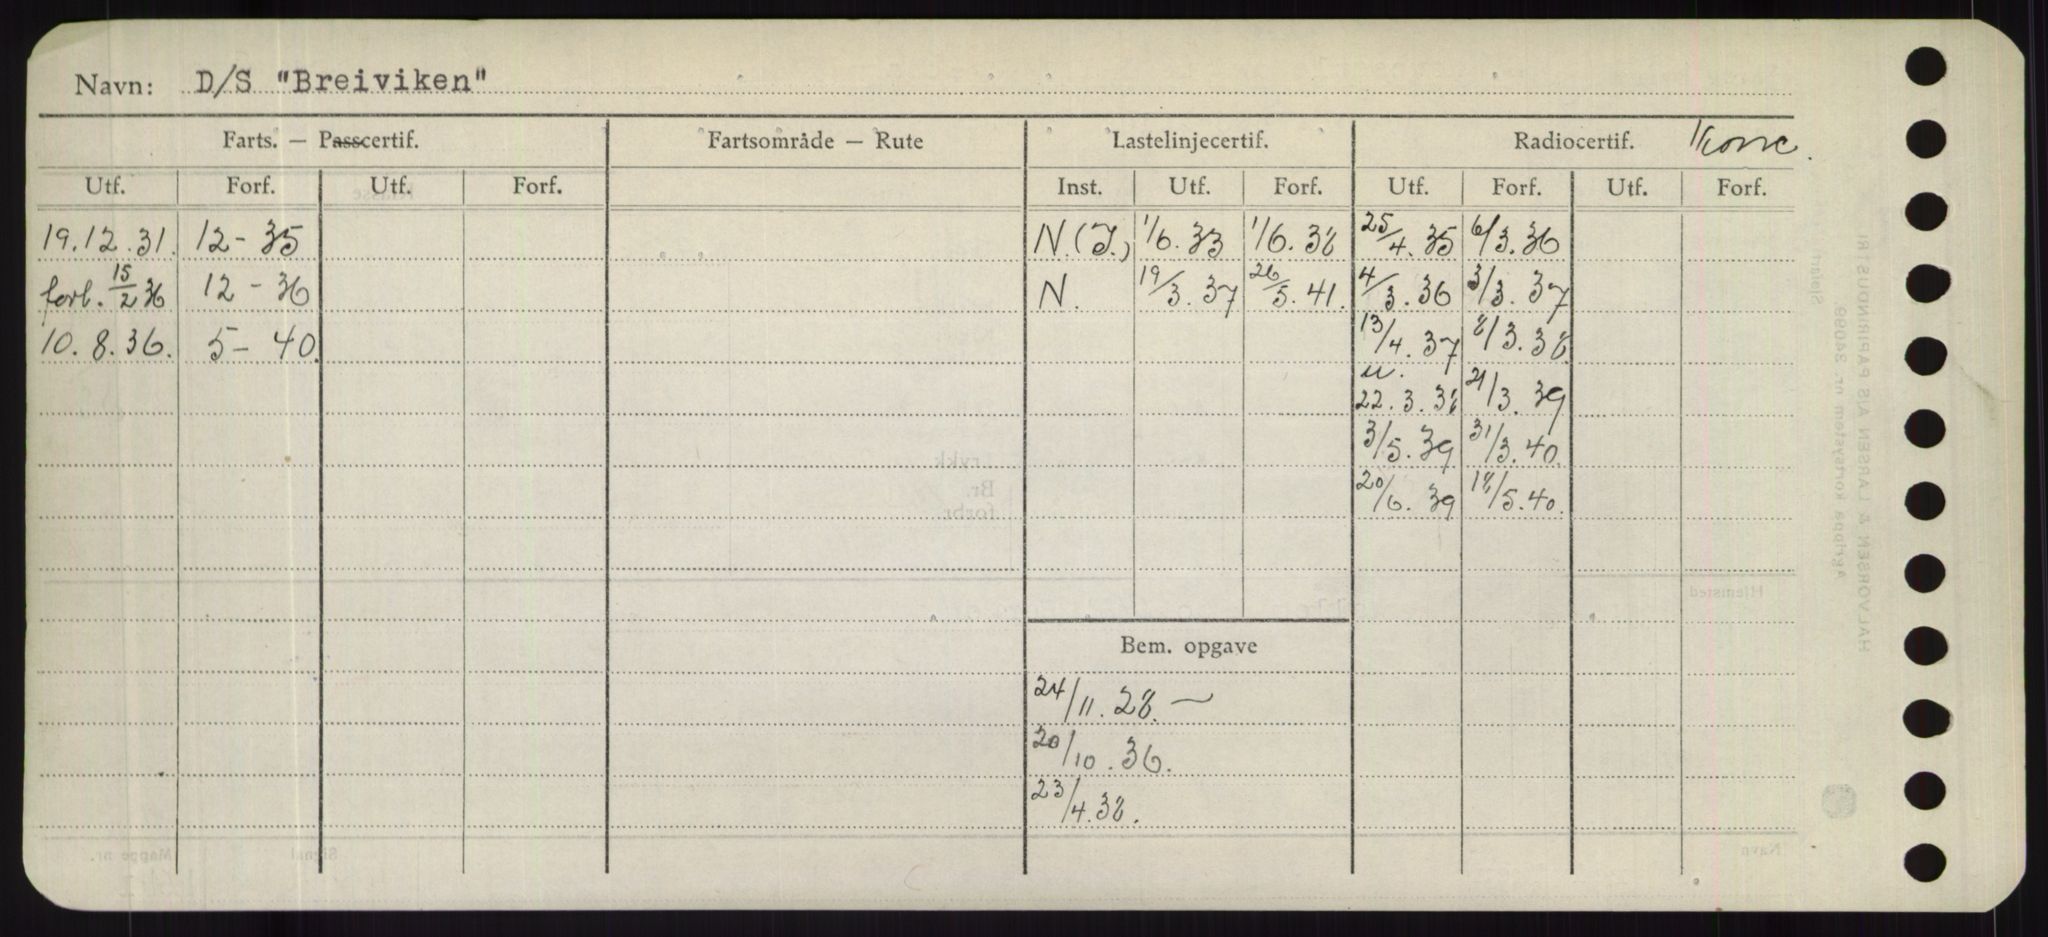 Navn: D/S "Breiviken"
Farts. — Passcertif. Fartsområde — Rute Lastelinjecertif. Radiocertif. Konc.
Utf. Forf. Utf. Forf. Inst. Utf. Forf. Utf. Forf. Utf. Forf.
19.12.31. 12-35 N.(I.) 1/6.33 1/6.38 25/4.35 6/3.36
forl. 15/2 36 12-36 N. 19/3.37 26/5.41. 4/3.36 3/3.37
10.8.36. 5-40. 13/4.37 8/3.38
u.
22.3.38 21/3.39
3/5.39 31/3.40.
20/6.39 18/5.40.
Bem. opgave
24/11.28. —
20/10.36.
23/4.38.